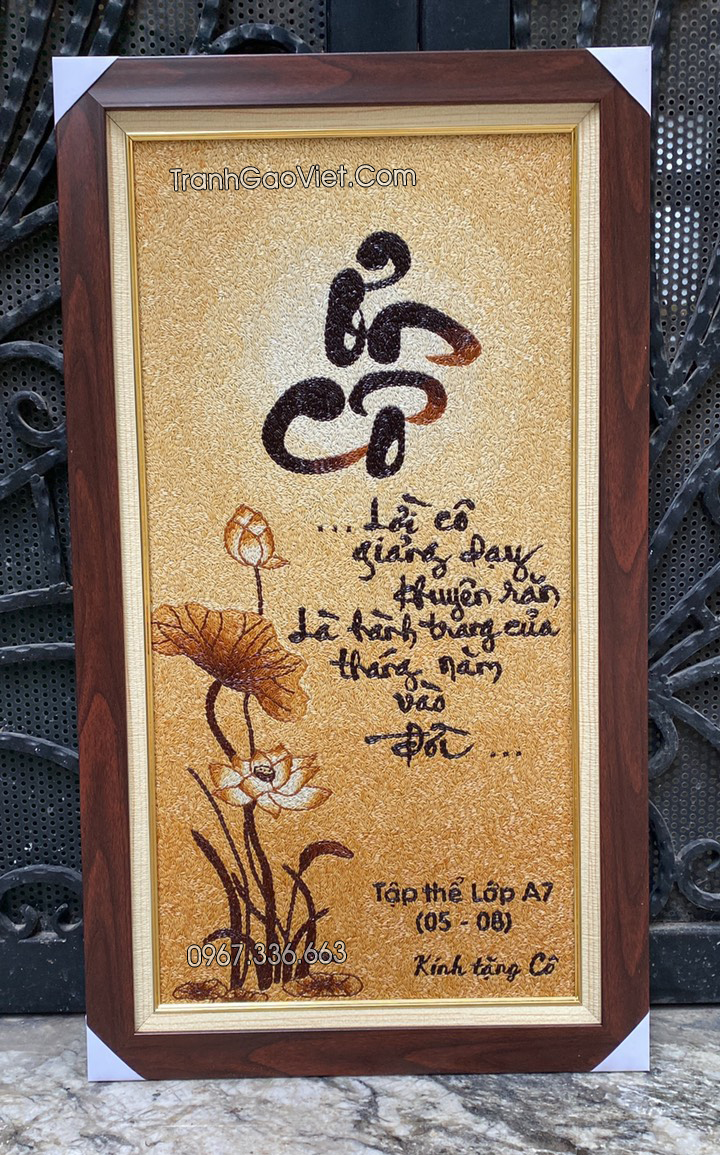 TranhGaoViet.Com
Ơn
Cô
... Lời cô
giảng dạy
khuyên răn
Là hành trang của
tháng năm
vào
Đời ...
Tập thể Lớp A7
(05 - 08)
0967.336.663
Kính tặng Cô